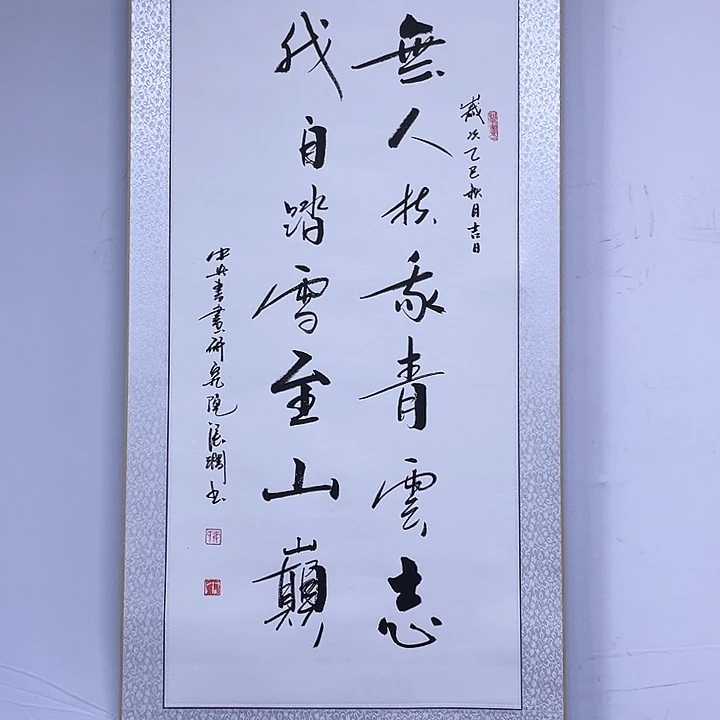 歲次乙巳秋月吉日
無人扶我青雲志
我自踏雪至山巔
中央書畫研究院張瀾書